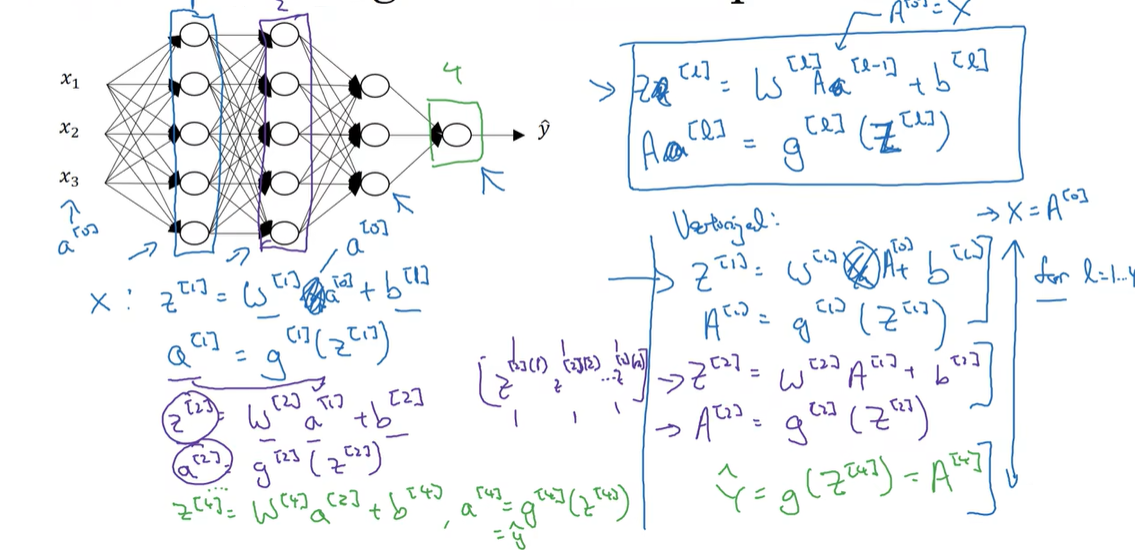 1 2
A^[0] = X
x₁
x₂
x₃
4
ŷ
a^[0]
Z^[l] = W^[l] A^[l-1] + b^[l]
A^[l] = g^[l](Z^[l])
a^[0]
X: z^[1] = W^[1] a^[0] + b^[1]
a^[1] = g^[1](z^[1])
z^[2] = W^[2] a^[1] + b^[2]
a^[2] = g^[2](z^[2])
....
z^[4] = W^[4] a^[2] + b^[4], a^[4] = g^[4](z^[4])
= ŷ
[z^[2](1) z^[2](2) ... z^[2](m)]
Vectorized:
→ X = A^[0]
Z^[1] = W^[1] A^[0] + b^[1]
A^[1] = g^[1](Z^[1])
→ Z^[2] = W^[2] A^[1] + b^[2]
→ A^[2] = g^[2](Z^[2])
Ŷ = g(Z^[4]) = A^[4]
for l=1..4